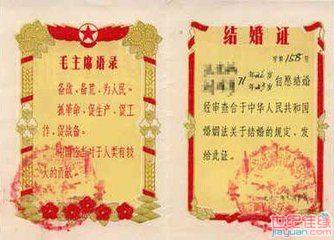 毛主席语录
备战、备荒、为人民。
抓革命，促生产，促工
作，促战备。
中国应当对于人类有较
大的贡献。
结婚证
字第158号
年26岁
年23岁
自愿结婚
经审查合于中华人民共和国
婚姻法关于结婚的规定，发
给此证。
世纪佳缘
jiayuan.com